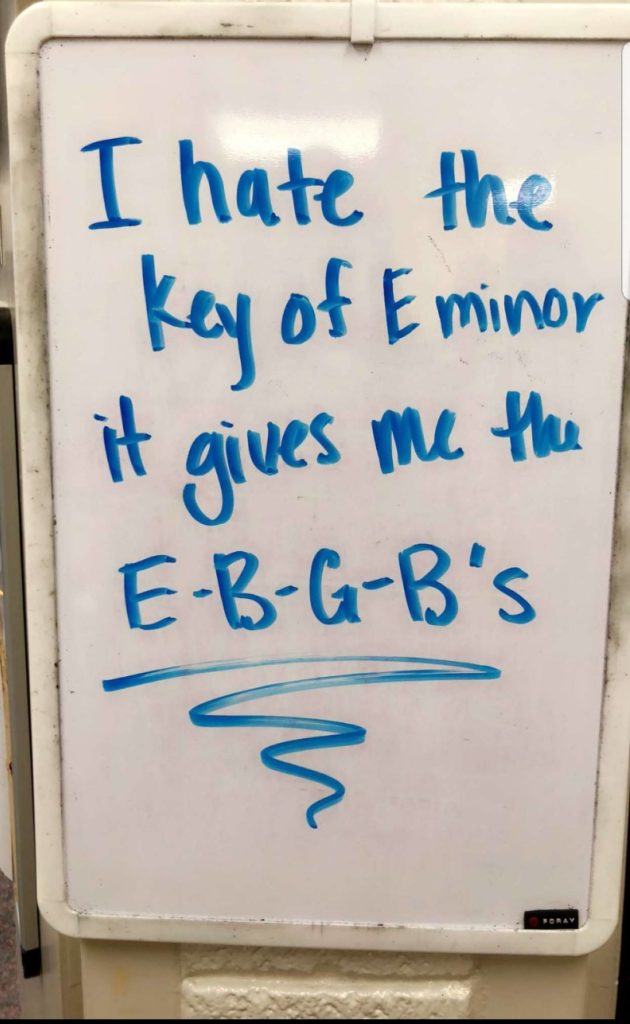 I hate the
key of E minor
it gives me the
E-B-G-B's
FORAY